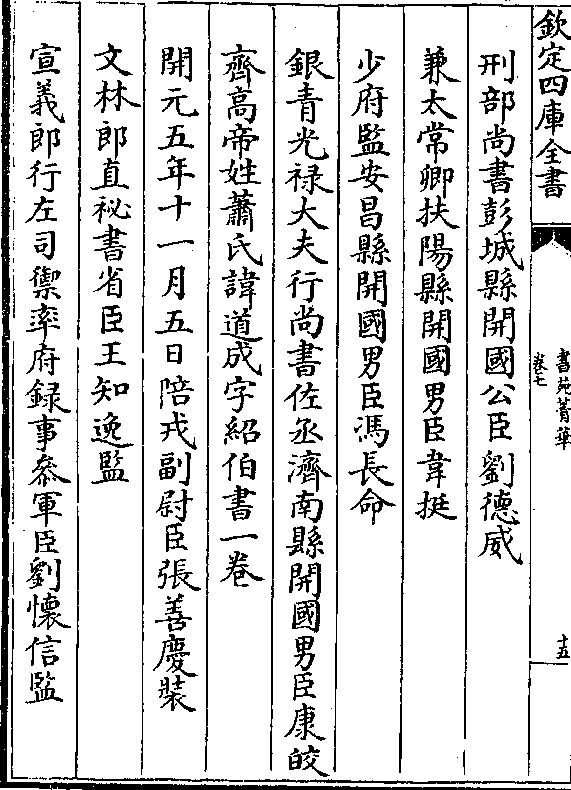 欽定四庫全書
書苑菁華
卷七
十五
刑部尚書彭城縣開國公臣劉德威
兼太常卿扶陽縣開國男臣韋挺
少府監安昌縣開國男臣馮長命
銀青光禄大夫行尚書佐丞濟南縣開國男臣康皎
齊高帝姓蕭氏諱道成字紹伯書一卷
開元五年十一月五日陪戎副尉臣張善慶裝
文林郎直祕書省臣王知逸監
宣義郎行左司禦率府録事叅軍臣劉懷信監